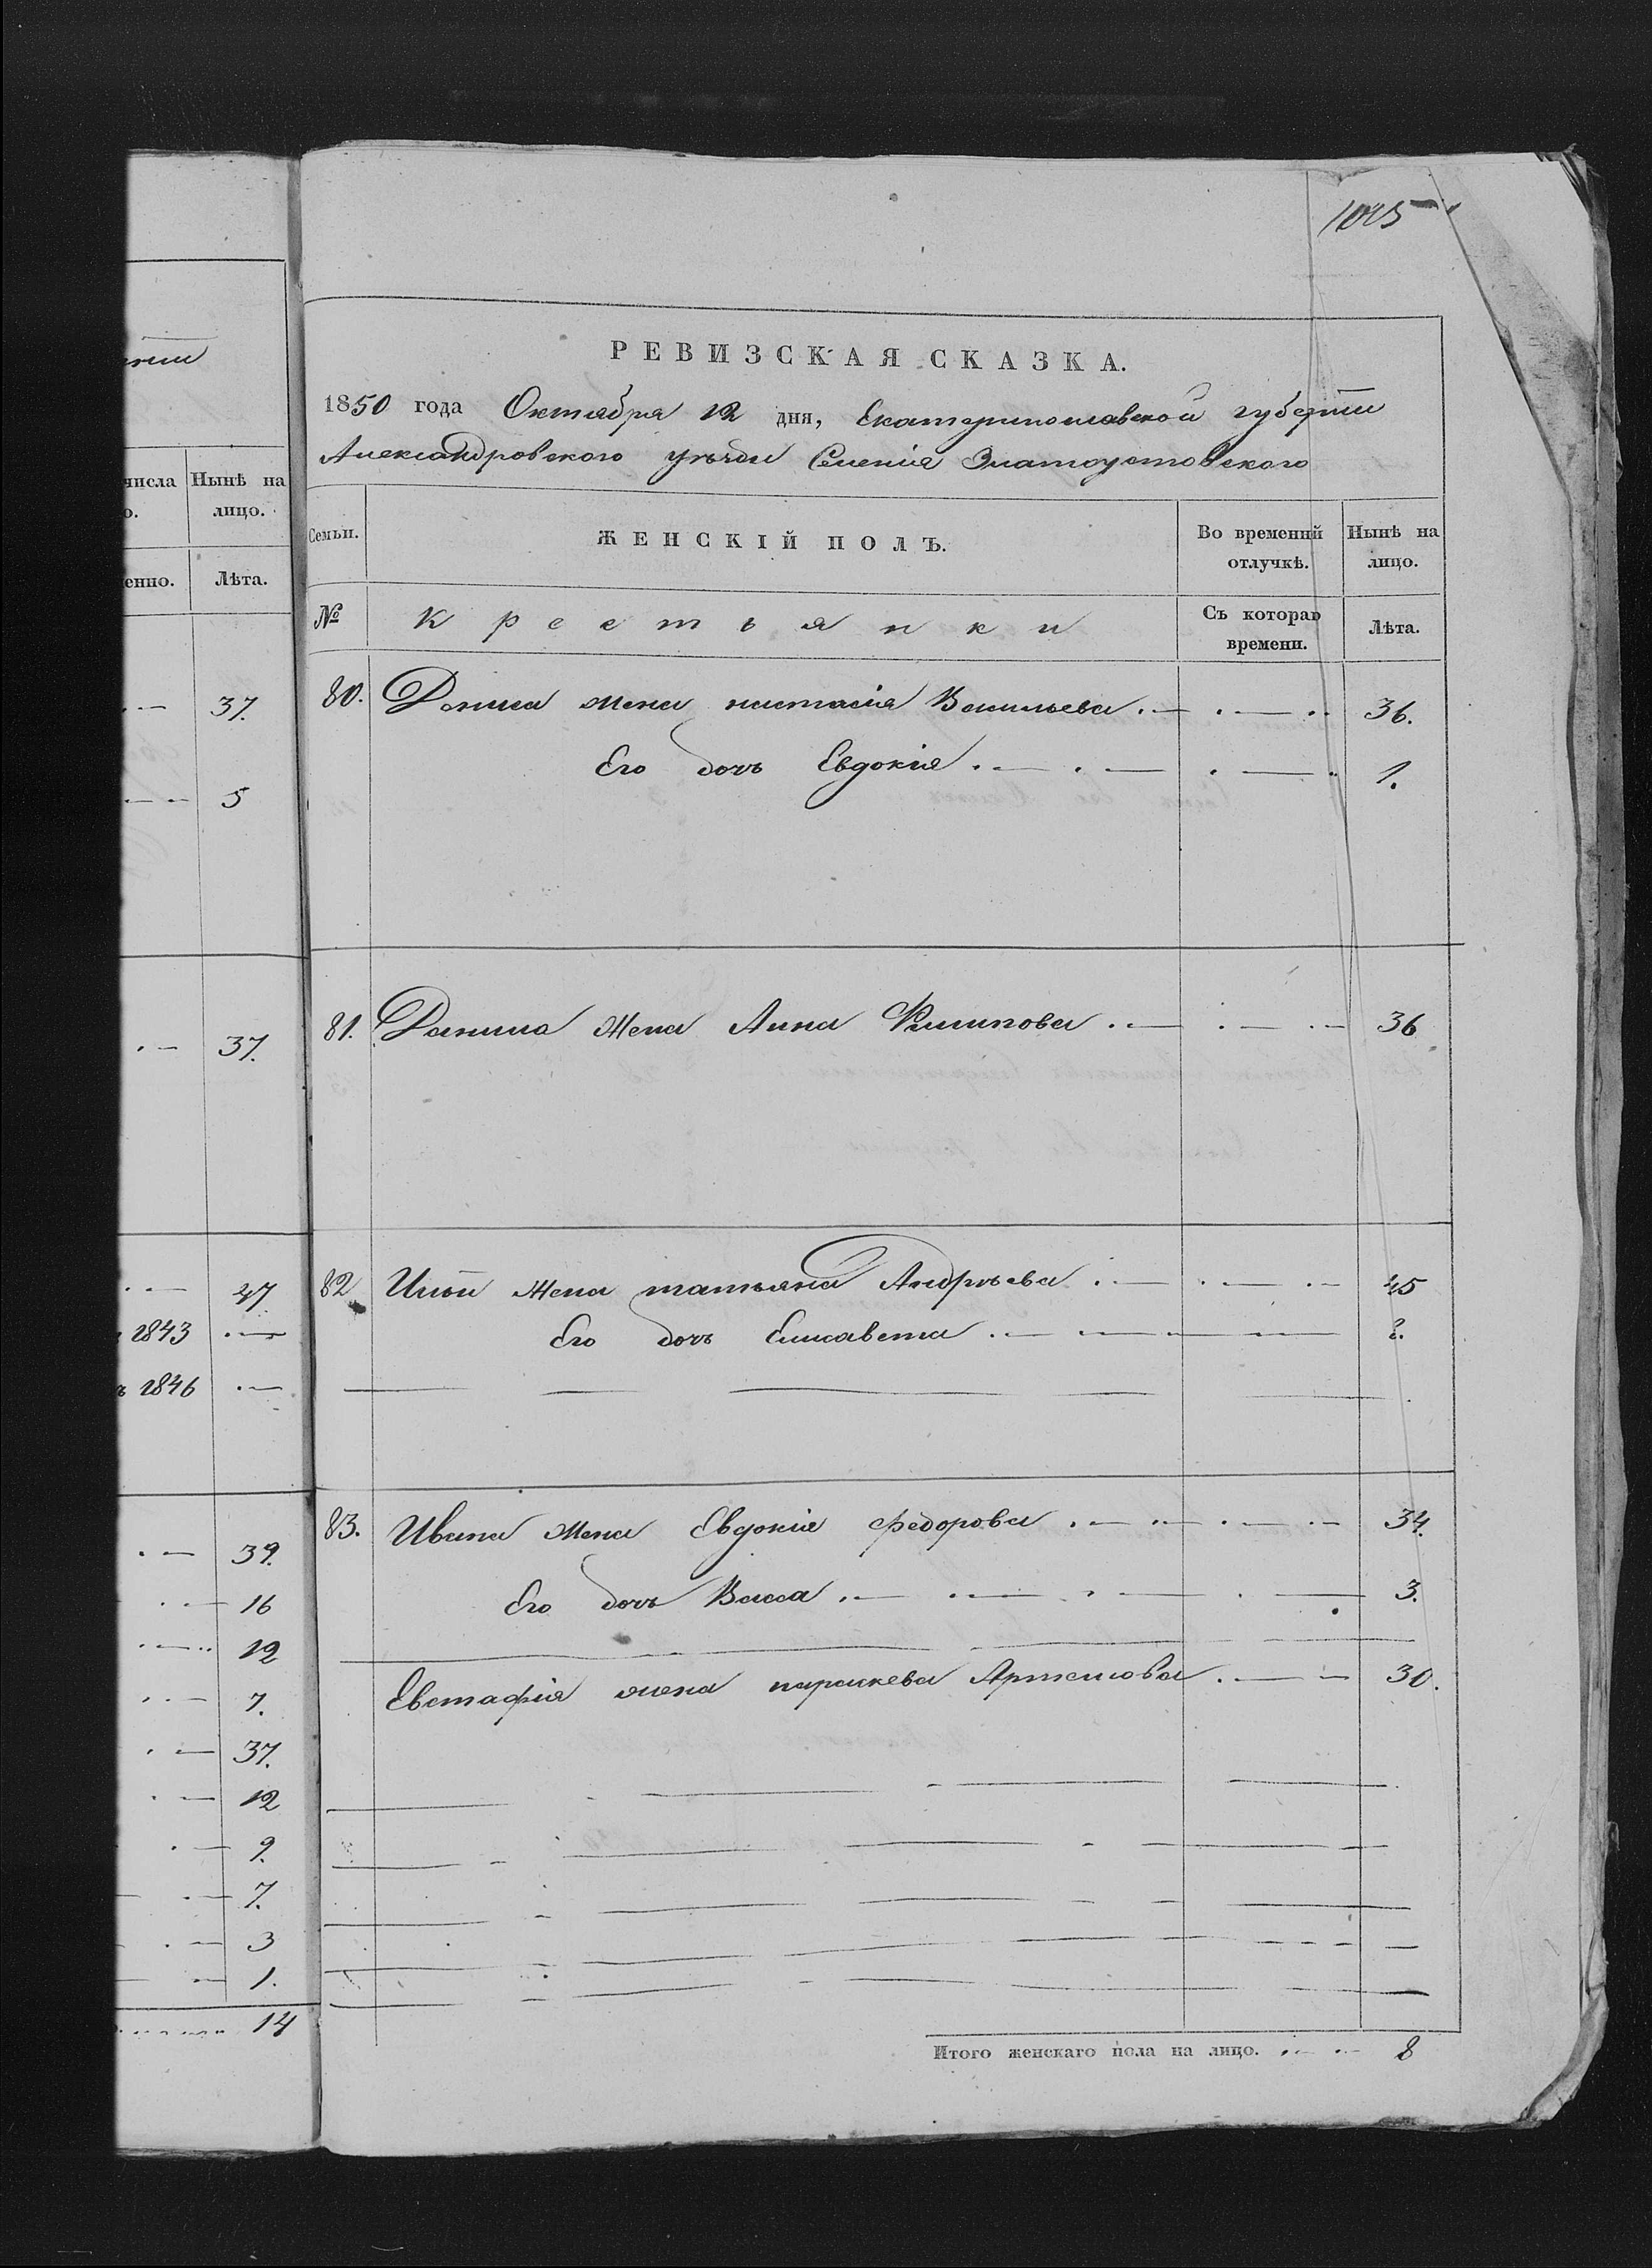 1085
РЕВИЗСКАЯ СКАЗКА.
1850 года Октября 12 дня, Екатеринославской губерніи
Александровского уѣзда Селенія Златоустовского
числа Нынѣ на
о. лицо.
енно. Лѣта.
Семьи. ЖЕНСКІЙ ПОЛЪ. Во временнй отлучкѣ. Нынѣ на лицо.
№ Крестьянки Съ котораго времени. Лѣта.
37. 80. Дениса жена настасія Васильева 36.
5 Его дочь Евдокія 1.
37. 81. Данила жена Анна Филипова 36
47 82 Ильи жена татьяна Андрѣева 45
1843 Его дочь Елисавета 2.
ъ 1846
39. 83. Ивана жена Евдокія федорова 34.
16 Его дочь Васса 3.
12
7. Евстафія жена параскева Артемова 30.
37.
12
9.
7.
3
1.
14
Итого женскаго пола на лицо. 8